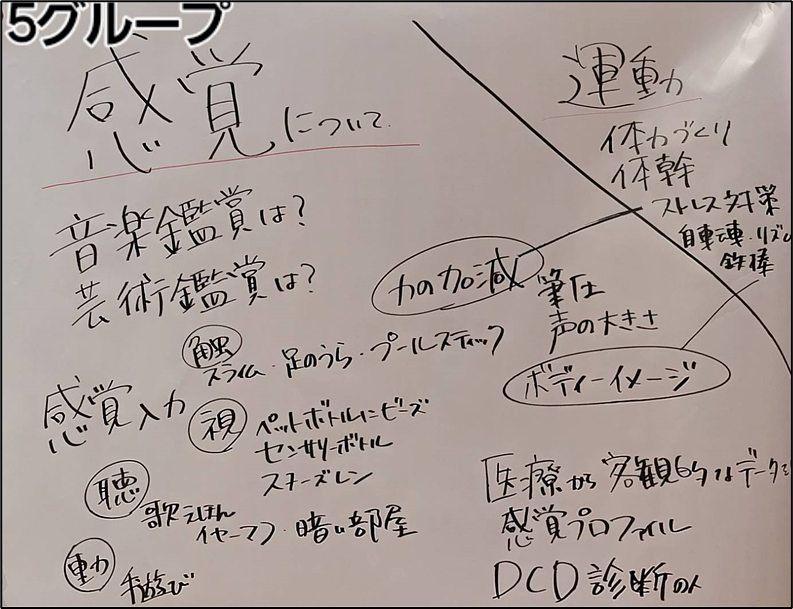 5グループ
感覚について
音楽鑑賞は?
芸術鑑賞は?
感覚入力
触
スライム・足のうら・プールスティック
視
ペットボトルにビーズ
センサリーボトル
スヌーズレン
聴
歌えほん
イヤーマフ・暗い部屋
動
手遊び
運動
体力づくり
体幹
ストレス対策
自転車・リズム
鉄棒
力の加減
筆圧
声の大きさ
ボディーイメージ
医療から客観的なデータを
感覚プロファイル
DCD診断の